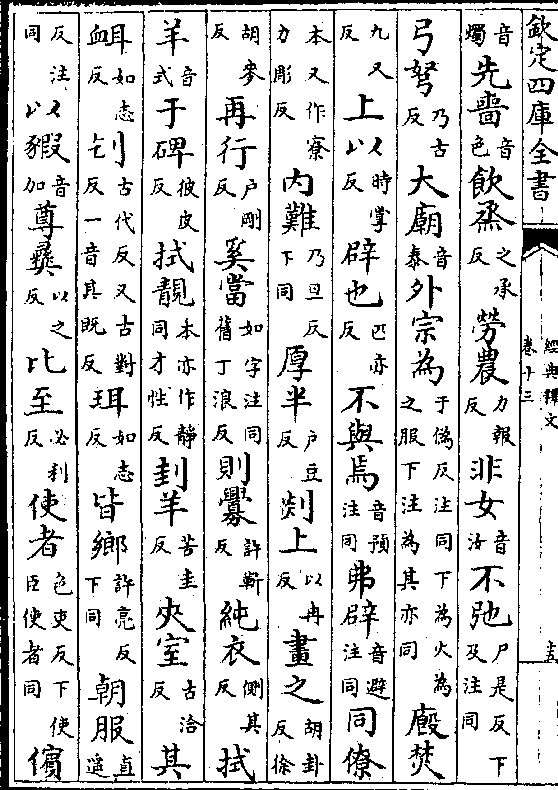 欽定四庫全書
經典釋文
卷十三
十五
音燭先嗇音色飲烝之承反勞農力報反非女音汝不弛尸是反下及注同
弓弩乃古反大廟音泰外宗為于偽反注同下為火為之服下注為其亦同廄焚
九又反上以時掌反辟也匹亦反不與焉音預注同弗辟音避注同同僚
本又作寮力彫反內難乃旦反下同厚半戶豆反剡上以冉反畫之胡卦反徐
胡麥反再行戶剛反奚當如字注同舊丁浪反則釁許靳反純衣側其反拭
羊音式于碑彼皮反拭靚本亦作靜同才性反刲羊苦圭反夾室古洽反其
衈如志反刉古代反又古對反一音其既反珥如志反皆鄉許亮反下同朝服直遙
反注同以豭音加尊彝以之反比至必利反使者色吏反下使臣使者同儐